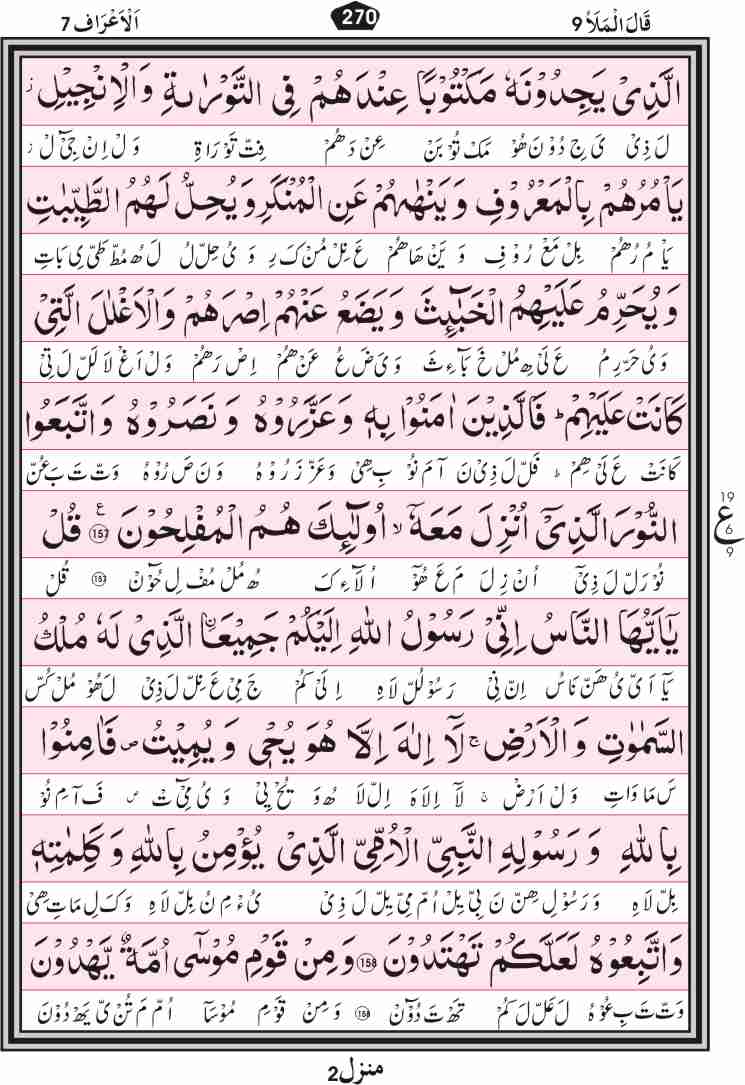 قَالَ الْمَلَاُ 9 270 اَلْاَعْرَاف 7
الَّذِىْ يَجِدُوْنَهٗ مَكْتُوْبًا عِنْدَهُمْ فِى التَّوْرٰٮةِ وَالْاِنْجِيْلِ ز
لَ ذِىْ يَ جِ دُوْ نَ هُوْ مَكْ تُوْ بَنْ عِنْ دَ هُمْ فِتْ تَوْ رَا ةِ وَ لْ اِنْ جِىْٓ لْ ز
يَاْمُرُهُمْ بِالْمَعْرُوْفِ وَيَنْهٰٮهُمْ عَنِ الْمُنْكَرِ وَيُحِلُّ لَهُمُ الطَّيِّبٰتِ
يَاْ مُ رُ هُمْ بِلْ مَعْ رُوْ فِ وَ يَنْ هَا هُمْ عَ نِلْ مُنْ كَ رِ وَ يُ حِلْ لُ لَ هُ مُطْ طَىْ يِ بَا تِ
وَيُحَرِّمُ عَلَيْهِمُ الْخَبٰٓٮِٕثَ وَيَضَعُ عَنْهُمْ اِصْرَهُمْ وَالْاَغْلٰلَ الَّتِىْ
وَ يُ حَرْ رِ مُ عَ لَىْ هِ مُلْ خَ بَآ ءِ ثَ وَ يَ ضَ عُ عَنْ هُمْ اِصْ رَ هُمْ وَ لْ اَغْ لَا لَلْ لَ تِىْ
كَانَتْ عَلَيْهِمْ ؕ فَالَّذِيْنَ اٰمَنُوْا بِهٖ وَعَزَّرُوْهُ وَنَصَرُوْهُ وَاتَّبَعُوا
كَا نَتْ عَ لَىْ هِمْ ؕ فَلْ لَ ذِىْ نَ آ مَ نُوْ بِ هِىْ وَ عَزْ زَ رُوْ هُ وَ نَ صَ رُوْ هُ وَتْ تَ بَ عُنْ
النُّوْرَ الَّذِىْۤ اُنْزِلَ مَعَهٗۤ ۙ اُولٰٓٮِٕكَ هُمُ الْمُفْلِحُوْنَ ع 157 قُلْ
نُوْ رَلْ لَ ذِىْٓ اُنْ زِ لَ مَ عَ هُوْٓ اُلَآءِ كَ هُ مُلْ مُفْ لِ حُوْٓنْ 157 قُلْ
19 ع 6 9
يٰۤاَيُّهَا النَّاسُ اِنِّىْ رَسُوْلُ اللّٰهِ اِلَيْكُمْ جَمِيْعَاۨ الَّذِىْ لَهٗ مُلْكُ
يَآ اَىْ يُ هَنْ نَا سُ اِنْ نِىْ رَ سُوْ لُلْ لَا هِ اِ لَىْ كُمْ جَ مِىْ عَ نِلْ لَ ذِىْ لَ هُوْ مُلْ كُسْ
السَّمٰوٰتِ وَالْاَرْضِ ۚ لَاۤ اِلٰهَ اِلَّا هُوَ يُحْىٖ وَيُمِيْتُ ۖ فَاٰمِنُوْا
سَ مَا وَا تِ وَ لْ اَرْضْ ۚ لَآ اِ لَا هَ اِلْ لَا هُ وَ يُحْ يِىْ وَ يُ مِىْٓ تْ ۖ فَ آ مِ نُوْ
بِاللّٰهِ وَرَسُوْلِهِ النَّبِىِّ الْاُمِّىِّ الَّذِىْ يُؤْمِنُ بِاللّٰهِ وَكَلِمٰتِهٖ
بِلْ لَا هِ وَ رَ سُوْ لِ هِنْ نَ بِىْ يِلْ اُمْ مِىْ يِلْ لَ ذِىْ يُ ءْ مِ نُ بِلْ لَا هِ وَ كَ لِ مَا تِ هِىْ
وَاتَّبِعُوْهُ لَعَلَّكُمْ تَهْتَدُوْنَ 158 وَمِنْ قَوْمِ مُوْسٰٓى اُمَّةٌ يَّهْدُوْنَ
وَتْ تَ بِ عُوْ هُ لَ عَلْ لَ كُمْ تَهْ تَ دُوْٓنْ 158 وَ مِنْ قَوْ مِ مُوْ سَآ اُمْ مَ تُنْ ىْ يَهْ دُوْ نَ
منزل2